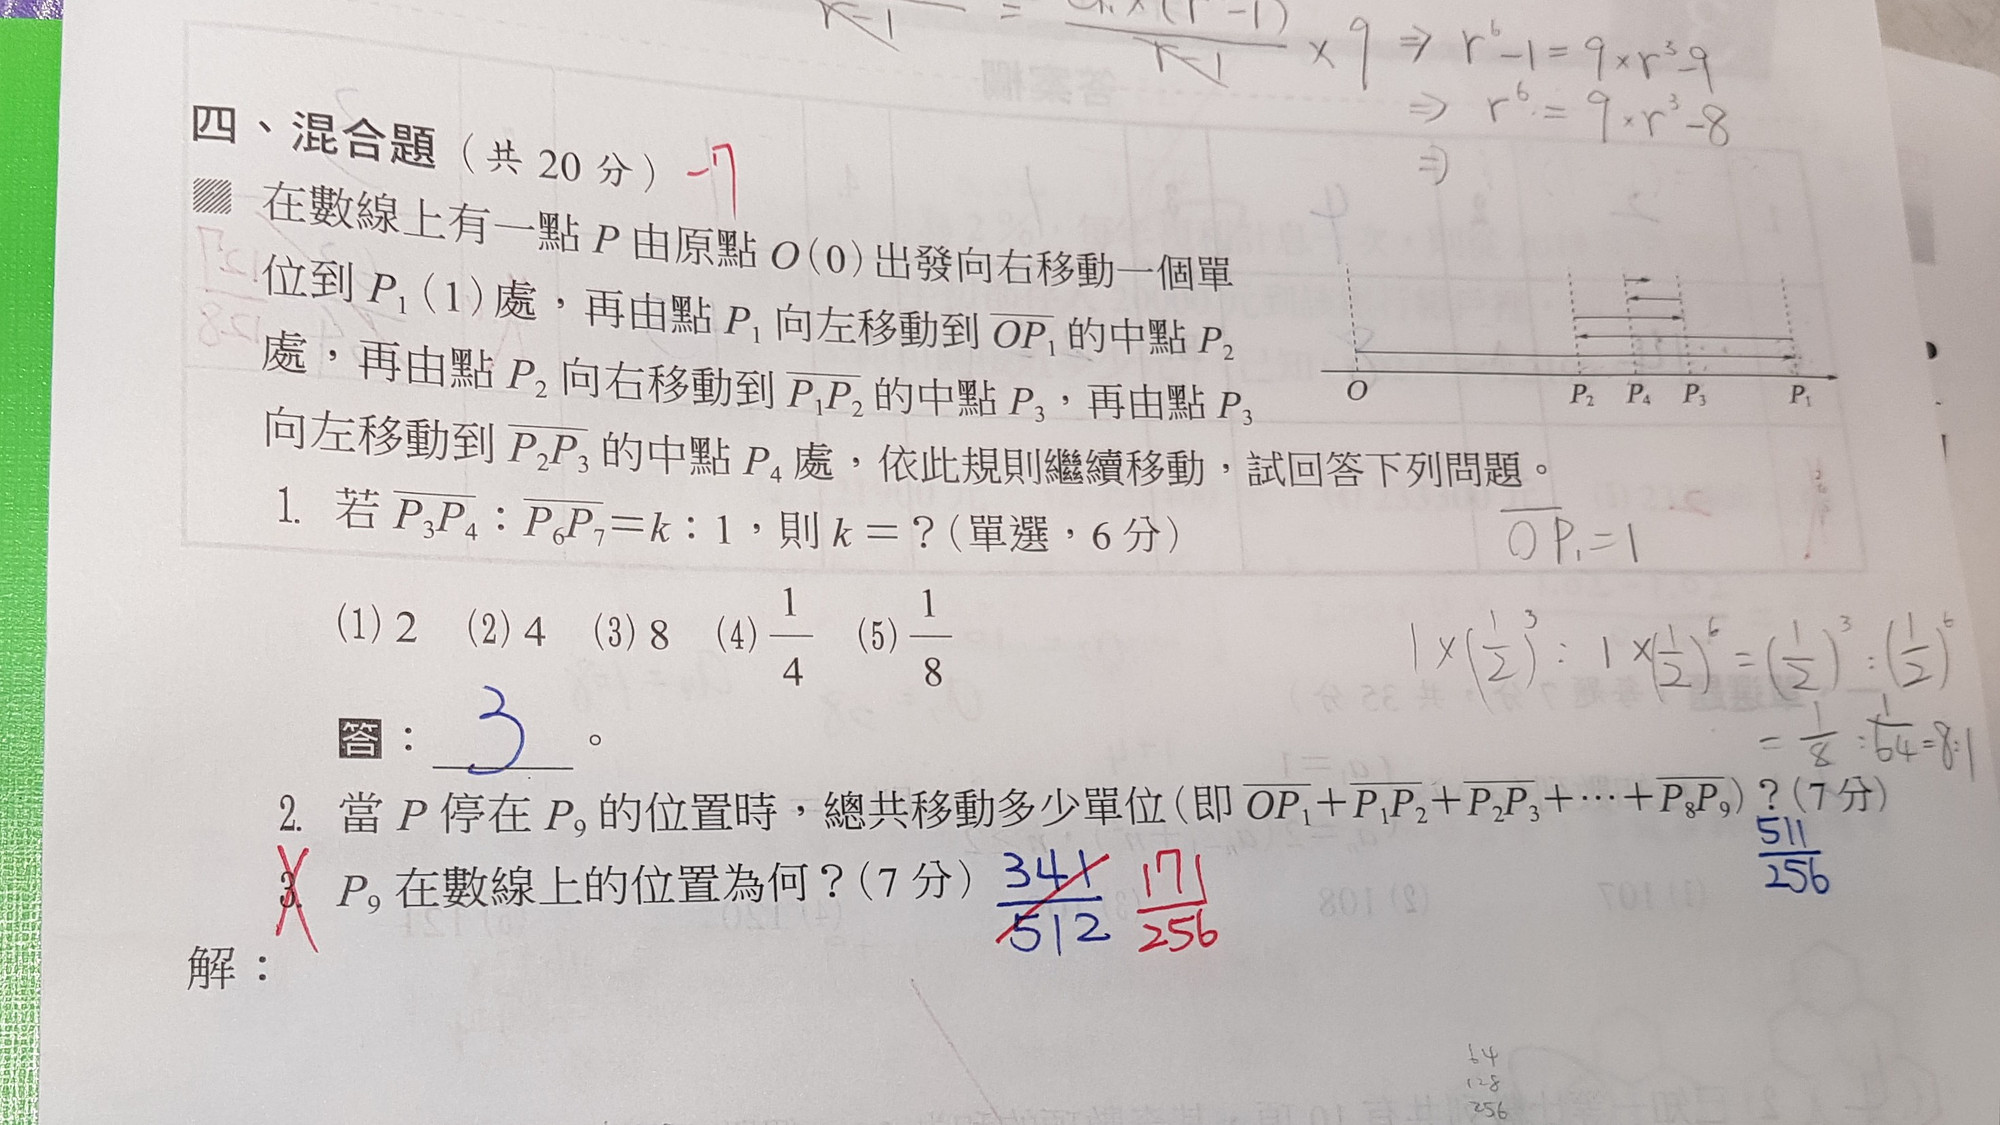 × 9 ⇒ r⁶-1 = 9×r³-9
⇒ r⁶ = 9×r³-8
⇒
四、混合題（共 20 分） -7
在數線上有一點 P 由原點 O(0) 出發向右移動一個單
位到 P₁(1) 處，再由點 P₁ 向左移動到 O̅P̅₁ 的中點 P₂
處，再由點 P₂ 向右移動到 P̅₁P̅₂ 的中點 P₃，再由點 P₃
向左移動到 P̅₂P̅₃ 的中點 P₄ 處，依此規則繼續移動，試回答下列問題。
O P₂ P₄ P₃ P₁
1. 若 P̅₃P̅₄：P̅₆P̅₇＝k：1，則 k＝？（單選，6 分）
O̅P̅₁=1
(1) 2 (2) 4 (3) 8 (4) 1/4 (5) 1/8
1×(1/2)³ : 1×(1/2)⁶ = (1/2)³ : (1/2)⁶
= 1/8 : 1/64 = 8:1
答：3。
2. 當 P 停在 P₉ 的位置時，總共移動多少單位（即 O̅P̅₁＋P̅₁P̅₂＋P̅₂P̅₃＋⋯＋P̅₈P̅₉）？（7 分）
511/256
3. P₉ 在數線上的位置為何？（7 分） 341/512 171/256
解：
64
128
256